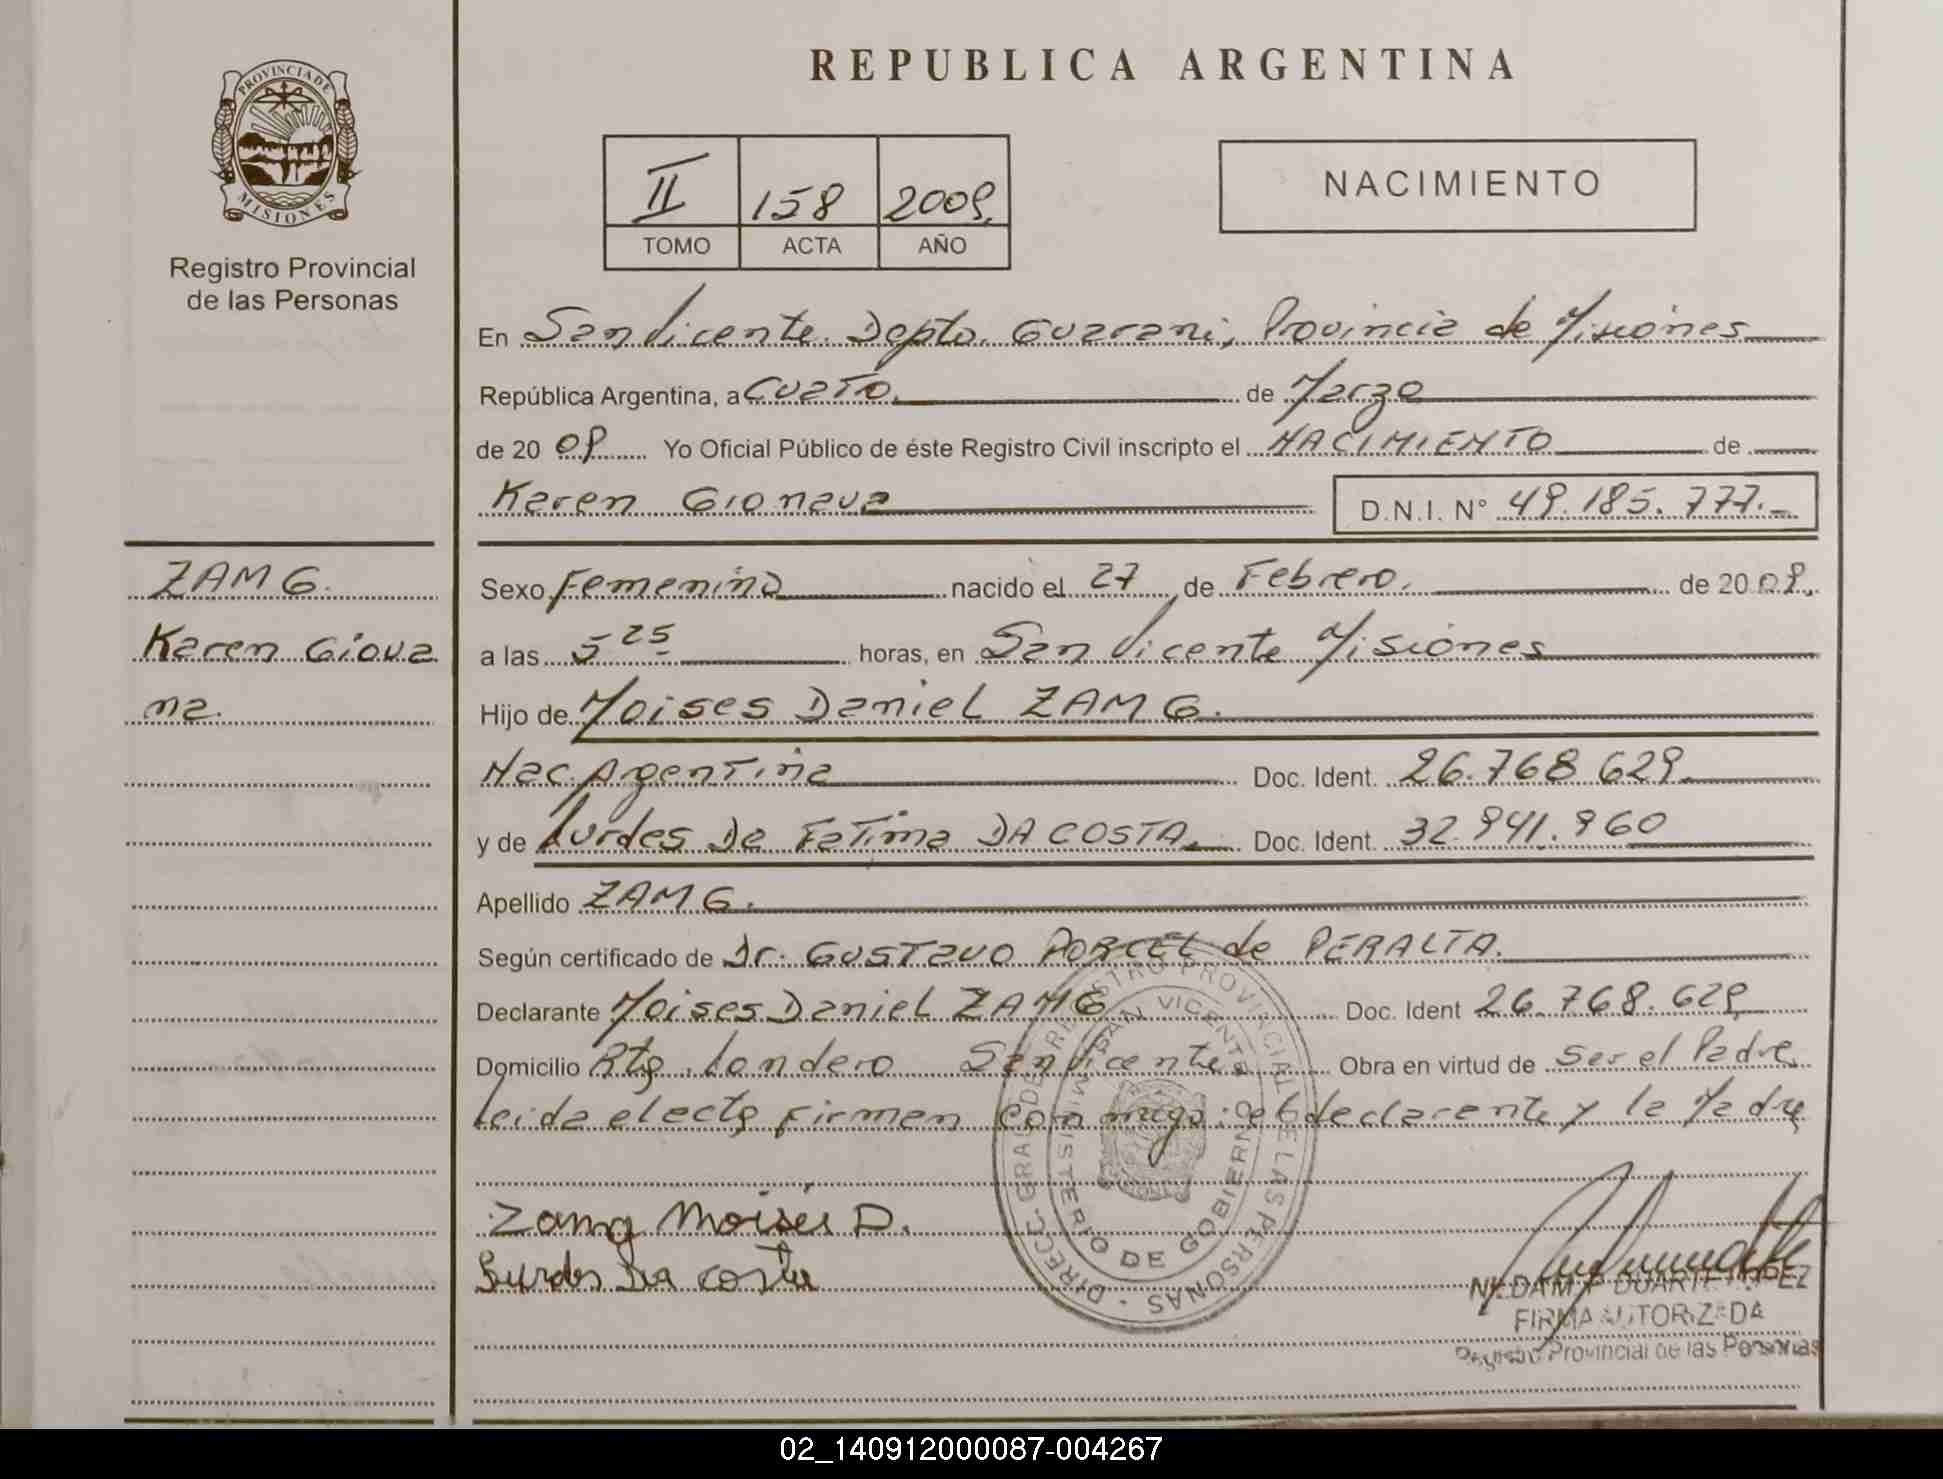 PROVINCIA DE
MISIONES
Registro Provincial
de las Personas
REPUBLICA ARGENTINA
II 158 2009.
TOMO ACTA AÑO
NACIMIENTO
En San Vicente. Depto. Guarani, Provincia de Misiones
República Argentina, a Cuato. de Marzo
de 20 09 Yo Oficial Público de éste Registro Civil inscripto el NACIMIENTO de
Karen Gionava D.N.I. N° 49.185.777.-
ZAMG.
Karen Giova
na.
Sexo Femenino nacido el 27 de Febrero. de 20 09.
a las 5 25 horas, en San Vicente Misiones
Hijo de Moises Daniel ZAMG.
Nac. Argentina Doc. Ident. 26.768.629.
y de Lurdes De Fatima DA COSTA. Doc. Ident. 32.941.960
Apellido ZAMG.
Según certificado de Dr. GUSTAVO PORCEL de PERALTA.
Declarante Moises Daniel ZAMG Doc. Ident 26.768.629
Domicilio Pje Londero San Vicente Obra en virtud de ser el Padre
Leida el acta firman conmigo: el declarante y la Madre
DIRECC. GRAL. DE REGISTRO PROVINCIAL DE LAS PERSONAS
SAN VICENTE
MINISTERIO DE GOBIERNO
Zamg Moises D.
Lurdes Da costa
DUARTE LOPEZ
FIRMA AUTORIZADA
Registro Provincial de las Personas
02_140912000087-004267